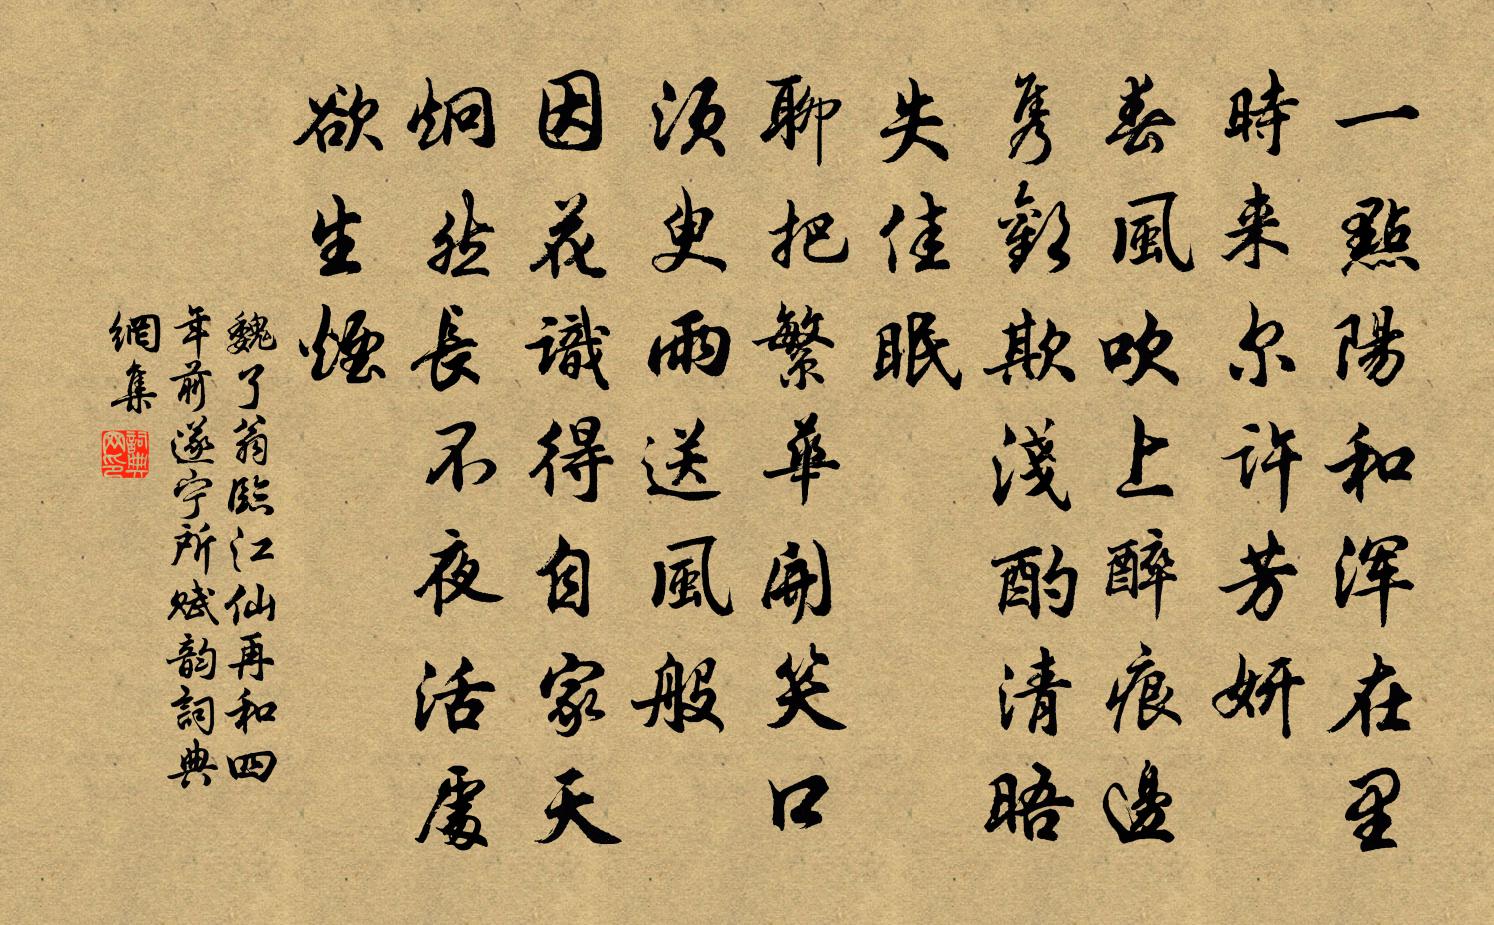 一點陽和渾在里
時来尔許芳妍
春風吹上醉痕邊
雋歡欺淺酌清晤
失佳眠
聊把繁華開笑口
須臾雨送風般
因花識得自家天
炯然長不夜活處
欲生煙
魏了翁臨江仙再和四
年前遂宁所赋韵詞典
網集
詞典
网印